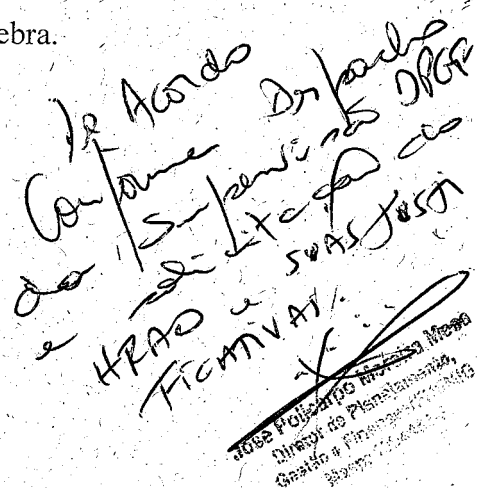 ebra.
De Acordo
Conforme Despacho
da Supervisão DPGF
e solicitação do
HRAD e SUAS JUSTI
FICATIVAS.
José Policarpo Moreira Mesa
Diretor de Planejamento,
Gestão e Finanças